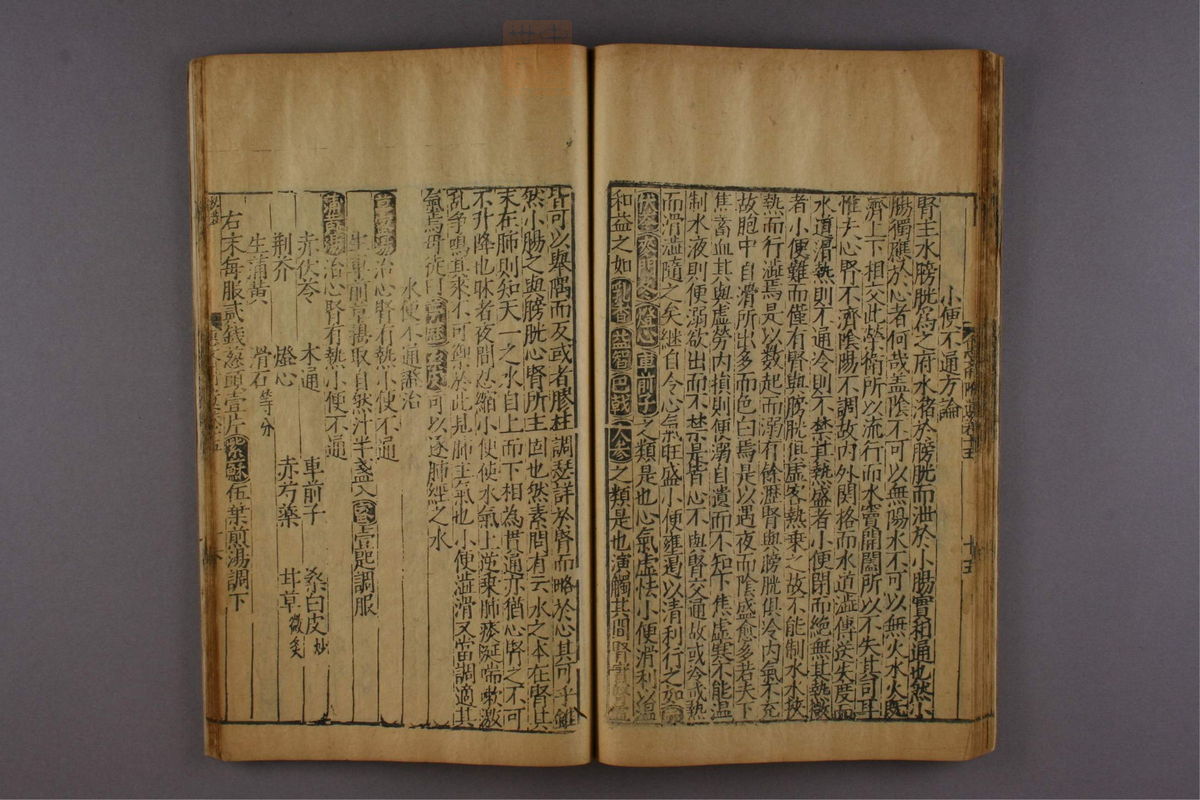 小便不通方論
腎主水膀胱爲之府水瀦於膀胱而泄於小腸實相通也然小
腸獨應於心者何哉蓋陰不可以無陽水不可以無火水火旣
濟上下相交此榮衛所以流行而水竇開闔所以不失其司耳
惟夫心腎不濟陰陽不調故內外関格而水道澁傳送失度而
水道滑熱則不通冷則不禁其熱盛者小便閉而絶無其熱微
者小便難而僅有腎與膀胱俱虛客熱乗之故不能制水水挾
熱而行澁焉是以數起而溺有餘瀝腎與膀胱俱冷內氣不充
故胞中自滑所出多而色白焉是以遇夜而陰盛愈多若夫下
焦畜血其與虛勞內損則便溺自遺而不知下焦虛寒不能温
制水液則便溺欲出而不禁是皆心不與腎交通故或冷或熱
而滑澁隨之矣継自今心氣旺盛小便壅遏以清利行之如
伏苓麥門冬燈心車前子之類是也心氣虛怯小便滑利以温
和益之如乳香益智巴戟人參之類是也演觸其間腎實腎虛
皆可以舉隅而反或者膠柱調瑟詳於腎而略於心其可乎雖
然小腸之與膀胱心腎所主固也然素問有云水之本在腎其
末在肺則知天一之水自上而下相為貫通亦猶心腎之不可
不升降也昧者夜間忍縮小便使水氣上逆乗肺痰涎喘嗽激
乱爭鳴其來不可禦於此見肺主氣也小便澁滑又當調適其
氣焉毋徒曰可以逐肺經之水
水便不通證治
湯治心腎有熱小便不通
生車前草搗取自然汁半盞入蜜壹匙調服
蒲黃湯治心腎有熱小便不通
赤伏苓 木通 車前子 桑白皮炒
荆芥 燈心 赤芍藥 甘草微炙
生蒲黃 滑石等分
右末每服貳錢葱頭壹片紫蘇伍葉煎湯調下